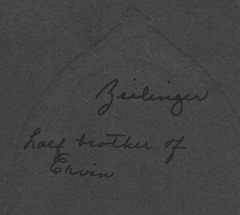 Zeilinger
half brother of
Ervin